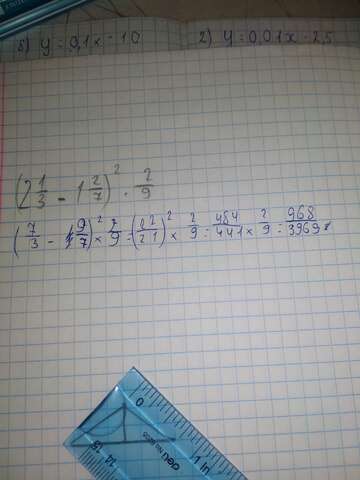 б) y = 0,1x - 10 2) y = 0,01x - 2,5
(2 1/3 - 1 2/7)² · 2/9
(7/3 - 9/7)² × 2/9 = (22/21)² × 2/9 = 484/441 × 2/9 = 968/3969
0 1 in
15 14